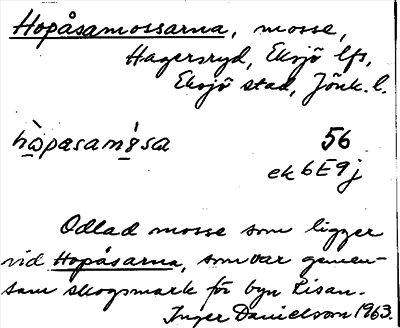 Hopåsamossarna, mosse,
Hagersryd, Eksjö lfs,
Eksjö stad, Jönk. l.
hòpasamo̲sa 56
ek 6E9j
Odlad mosse som ligger
vid Hopåsarna, som var gemen-
sam skogsmark för byn Risan.
Inger Danielsson 1963.